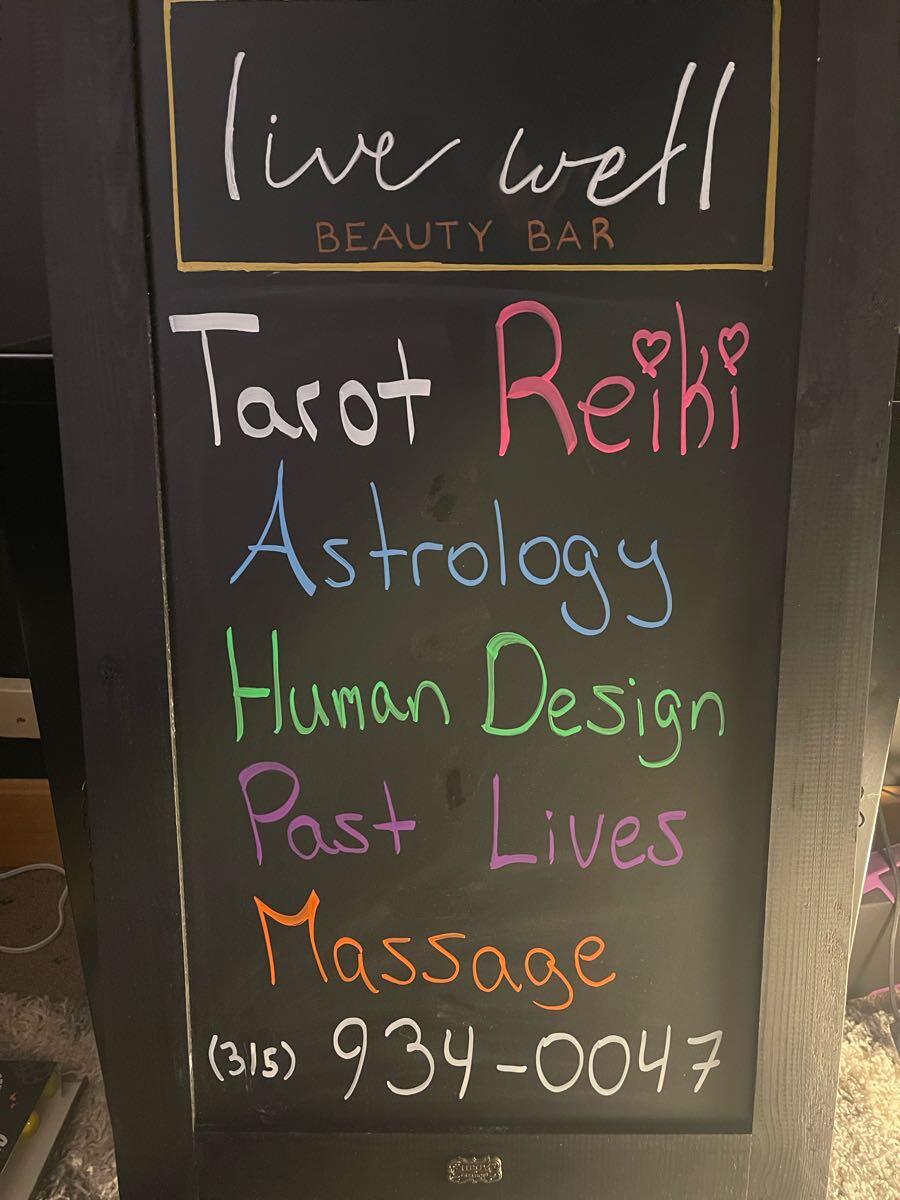 live well
BEAUTY BAR
Tarot Reiki
Astrology
Human Design
Past Lives
Massage
(315) 934-0047